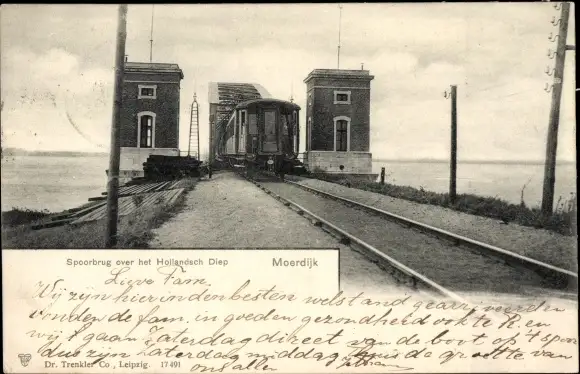 Spoorbrug over het Hollandsch Diep Moerdijk
Lieve Fam.
Wij zijn hier in den besten welstand gearriveerden
vonden de fam. in goeden gezondherd ook te R. en
wij gaan Zaterdag direct van de boot op 't spoor
dus zijn Zaterdag middag thuis de groette van
ons allen
Dr. Trenkler Co., Leipzig. 17491